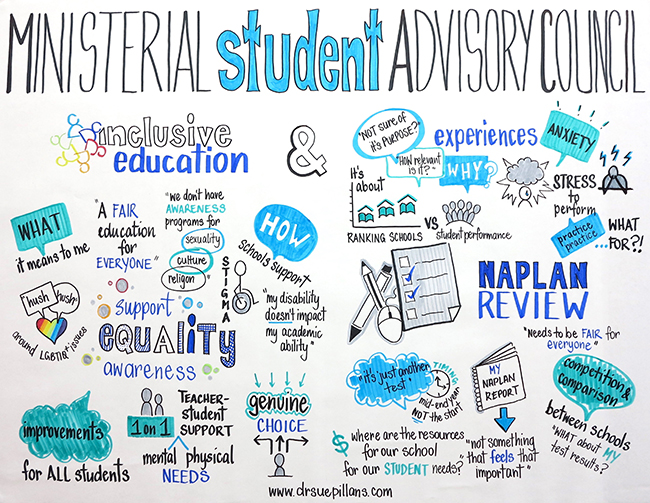 MINISTERIAL student ADVISORY COUNCIL
inclusive
education
&
WHAT
it means to me
"A FAIR
education
for
EVERYONE"
"we don't have
AWARENESS
programs for
sexuality
culture
religon
STIGMA
HOW
schools support
"my disability
doesn't impact
my academic
ability"
"hush hush"
around LGBTIQ+ issues
support
EQUALITY
awareness
improvements
for ALL students
1 on 1
TEACHER-
STUDENT
SUPPORT
mental physical
NEEDS
genuine
CHOICE
"NOT SURE of
it's PURPOSE?"
"HOW relevant
is it?"
WHY?
experiences
ANXIETY
It's
about
RANKING SCHOOLS
VS
student performance
STRESS
to
perform
practice
practice
...WHAT
FOR?!
NAPLAN
REVIEW
"Needs to be FAIR for
everyone"
"it's just another
test"
TIMING
mid-end year
NOT the start
MY
NAPLAN
REPORT
"not something
that feels that
important"
competition &
comparison
between schools
"WHAT about MY
test results?"
$
where are the resources
for our school
for our STUDENT needs?
www.drsuepillans.com